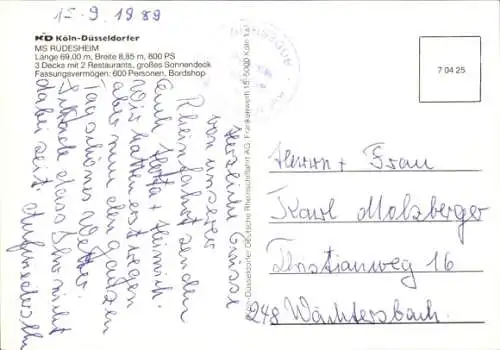 15.9.1989
KD Köln-Düsseldorfer
MS RÜDESHEIM
Länge 69,00 m, Breite 8,85 m, 800 PS
3 Decks mit 2 Restaurants, großes Sonnendeck
Fassungsvermögen: 600 Personen, Bordshop
Herzliche Grüsse
von unserer
Rheinfahrt senden
Euch + Heinrich.
Wir hatten erst Regen
aber nun den ganzen
Tag schönes Wetter.
Schade dass Ihr nicht
dabei seit.
Köln-Düsseldorfer Deutsche Rheinschiffahrt AG, Frankenwerft 15, 5000 Köln 1
7 04 25
Herrn + Frau
Karl Molzberger
16
Wächtersbach.